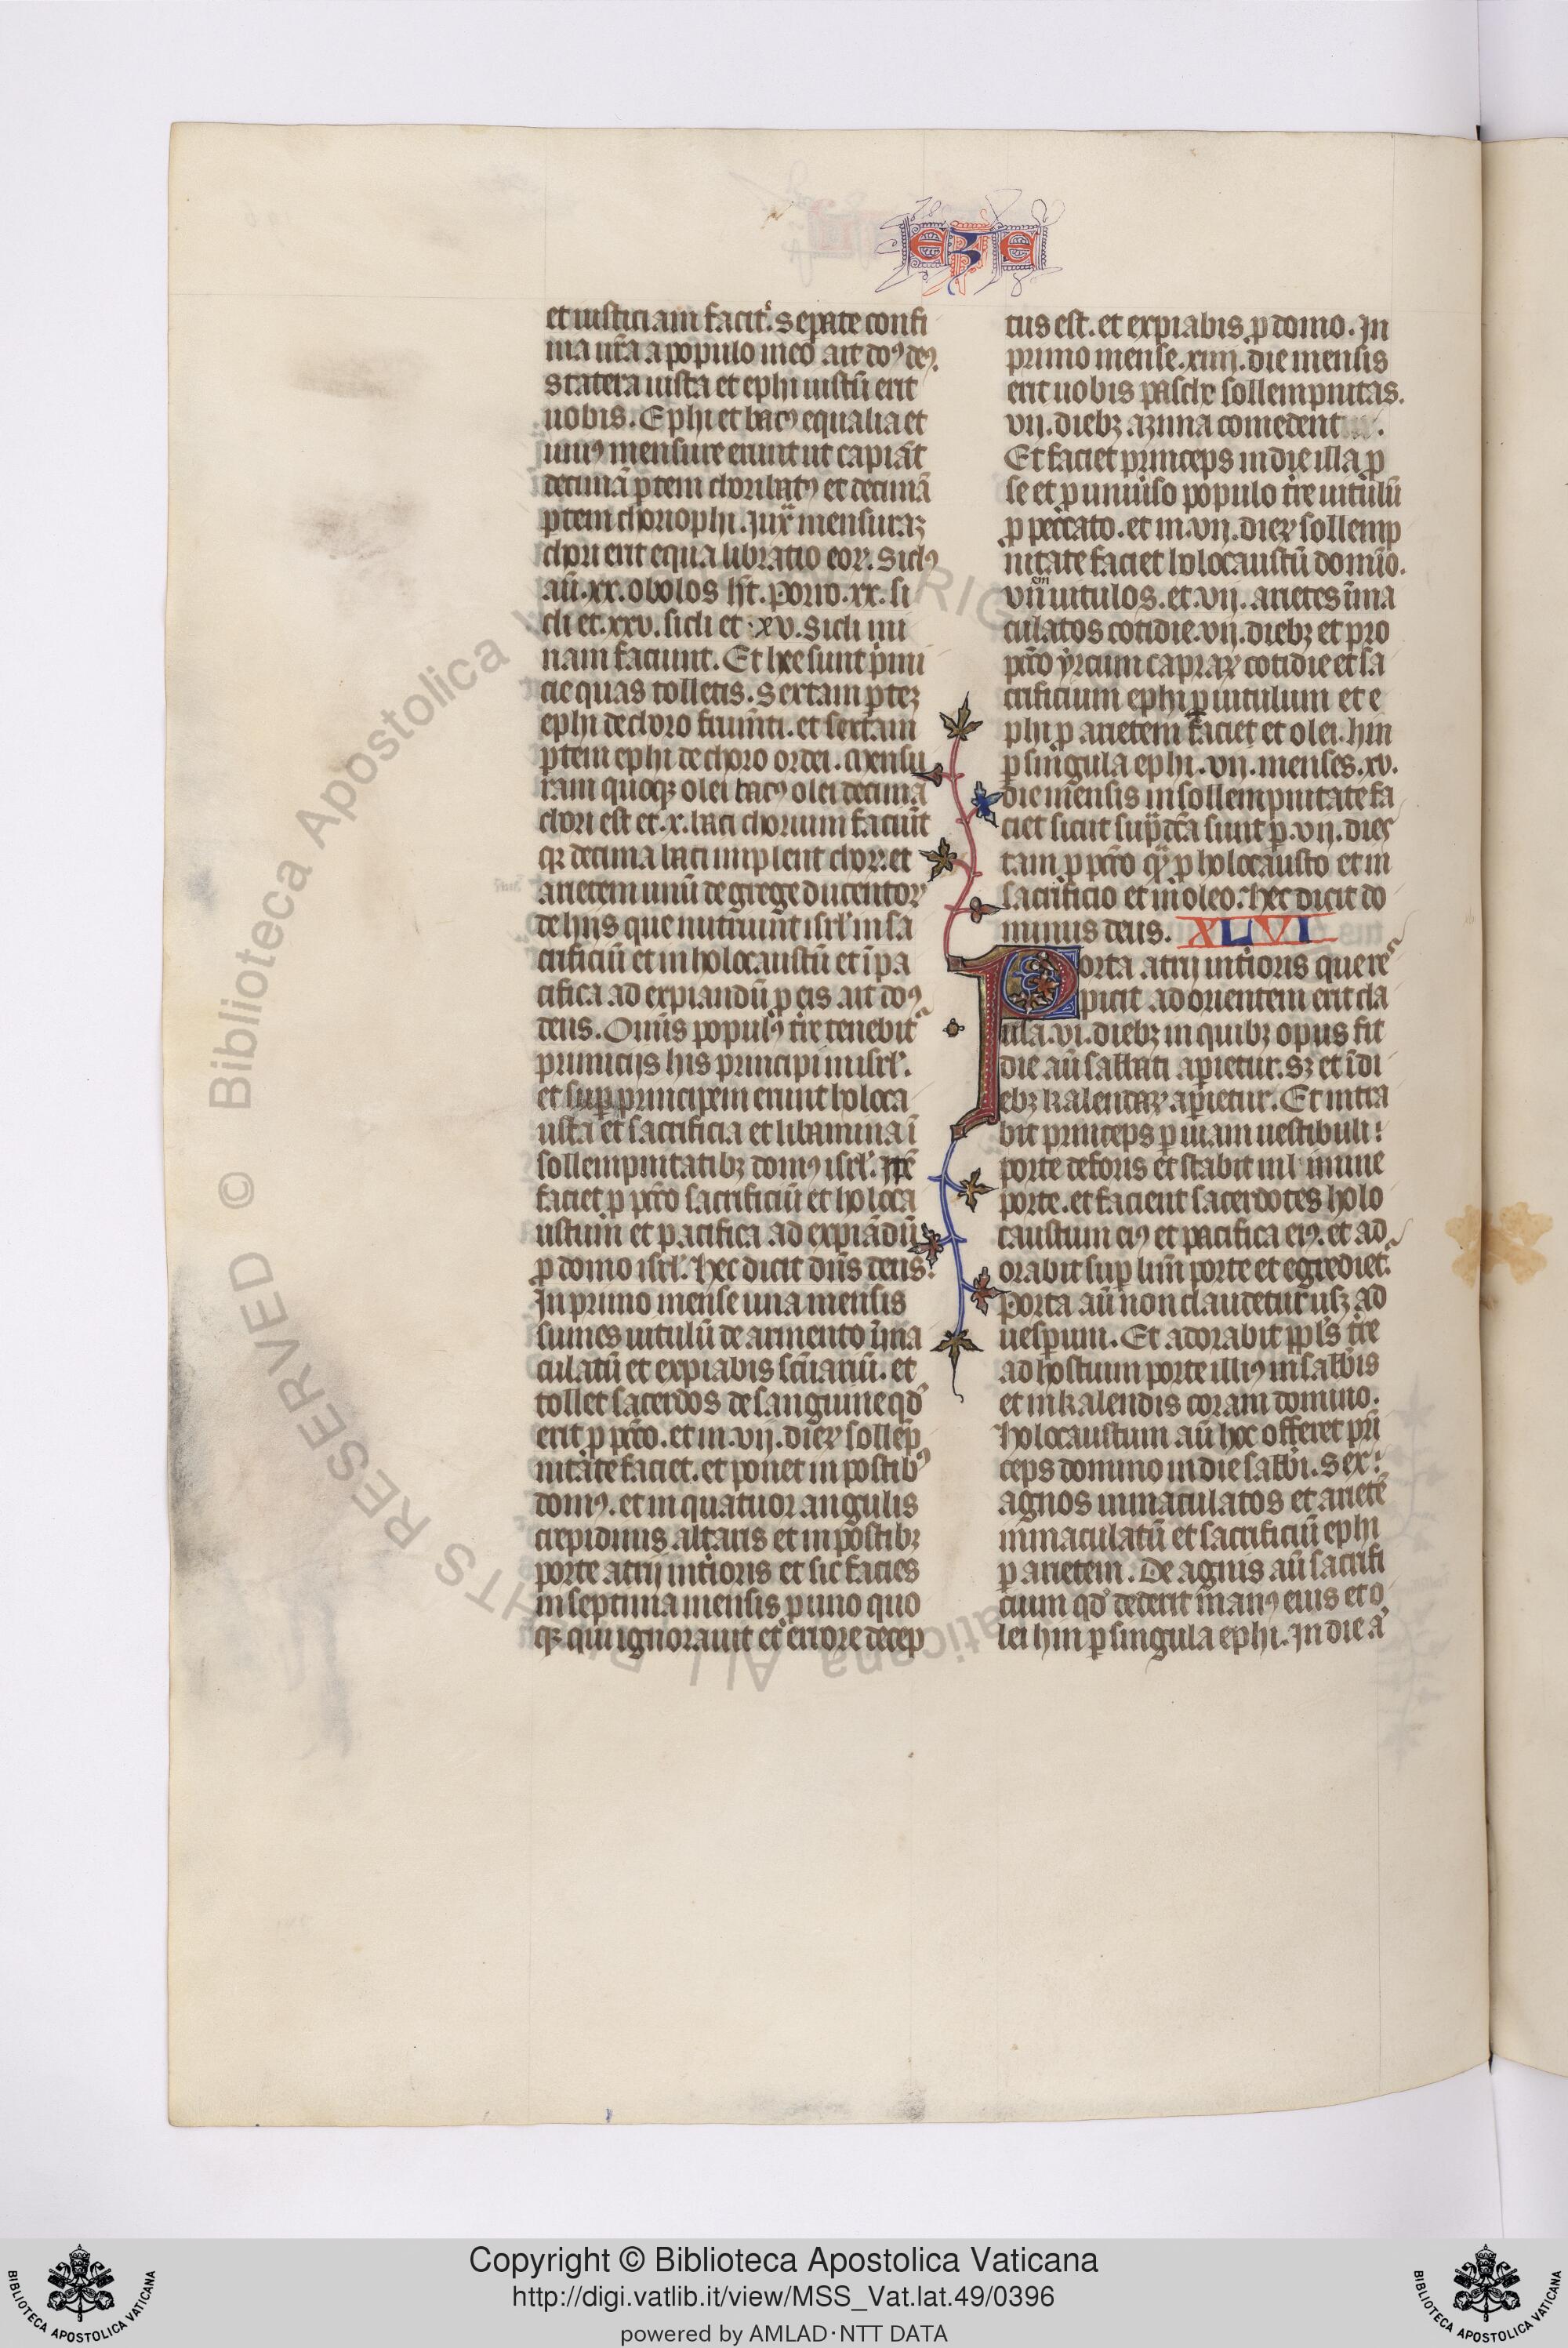 EZE
et iusticiam facit᷑. Sepate confi
nia ur̄a a populo meo ait do᷒ de᷒.
Statera iusta et ephi iustū erit
uobis. Ephi et bat᷒ equalia et
uni᷒ mensure erunt ut capiāt
decimā ꝑtem chori bat᷒ et decimā
ꝑtem chori ophi. Iux̄ mensuraʒ
chori erit equa libratio eoꝝ. Sicl᷒
aū .xx. obolos hn̄t. Porro .xx. si
cli et .xxv. sicli et .xv. sicli mi
nam faciunt. Et hee sunt pͥmi
cie quas tolletis. Sextam ꝑteʒ
ephi de choro frum̄ti. et sextam
ꝑtem ephi de choro ordei. Mensu
ram quoqʒ olei bat᷒ olei decima
chori est et .x. bati chorum faciūt
qꝛ decima bati implent choꝝ. et
arietem unū de grege ducentoꝝ
de hijs que nutriunt isrl̓ in sa
crificiū et in holocaustū et ī pa
cifica ad expiandū ꝓ eis ait do᷒
deus. Omīs popul᷒ tr̄e tenebit᷑
primicijs his principi in isrl̓.
et suꝑ principem erunt holoca
usta et sacrificia et libamina ī
sollempnitatibʒ dom᷒ isrl̓. Ip̄e
faciet ꝓ pcc̄o sacrificiū et holoca
ustum et pacifica ad expiādū
ꝓ domo isrl̓. Hec dicit dn̄s deus.
In primo mense una mensis
sumes uitulū de armento īma
culatū et expiabis sc̄uariū. et
tollet sacerdos de sanguine qd̓
erit ꝓ pcc̄o. et in .vij. dieꝝ sollep̄
nitate faciet. et ponet in postib᷒
dom᷒. et in quatuor angulis
crepidinis altaris et in postibʒ
porte atrij int̓ioris et sic facies
in septima mensis ꝓ uno quo
qʒ qui ignorauit et errore decep
tus est. et expiabis ꝓ domo. In
primo mense .xiiij. die mensis
erit uobis pasche sollempnitas.
vij. diebʒ azima comedent.
Et faciet princeps in die illa ꝓ
se et ꝓ uniuͥso populo tr̄e uitulū
ꝓ peccato. et in .vij. dieꝝ sollemp
nitate faciet holocaustū domīo.
vij uitulos. et .vij. arietes īma
culatos cotidie .vij. diebʒ et pro
pcc̄o yrcum capraꝝ cotidie et sa
crificium ephi ꝑ uitulum et e
phi ꝑ arietem faciet et olei. hin
ꝑ singula ephi. vij. menses .xv.
die mensis in sollempnitate fa
ciet sicut supᷓ dc̄a sunt ꝑ .vij. dies
tam ꝓ pcc̄o qᷓ ꝓ holocausto et in
sacrificio et in oleo. Hec dicit do
minus deus. XLVI
Porta atrij int̓ioris que re
spicit ad orientem erit cla
usa .vi. diebʒ in quibʒ opus fit
die aū sabbati aꝑietur. sʒ et ī di
ebʒ kalendaꝝ aꝑietur. Et intra
bit princeps ꝑ uiam uestibuli
porte deforis et stabit in limine
porte. et facient sacerdotes holo
caustum ei᷒ et pacifica ei᷒. et ad
orabit suꝑ lim̄ porte et egrediet᷑.
Porta aū non claudetur usqʒ ad
uesꝑum. Et adorabit ppl̓s tr̄e
ad hostium porte illi᷒ in sabb̄is
et in kalendis coram domino.
Holocaustum aū hoc offeret prī
ceps domino in die sabb̄i. Sex
agnos inmaculatos et arietē
inmaculatū et sacrificiū ephi
ꝑ arietem. De agnis aū sacrifi
cium qd̓ dederit man᷒ eius et o
lei hin ꝑ singula ephi. In die a᷑
© Biblioteca Apostolica Vaticana ALL RIGHTS RESERVED
Copyright © Biblioteca Apostolica Vaticana
http://digi.vatlib.it/view/MSS_Vat.lat.49/0396
powered by AMLAD·NTT DATA
BIBLIOTECA APOSTOLICA VATICANA
BIBLIOTECA APOSTOLICA VATICANA